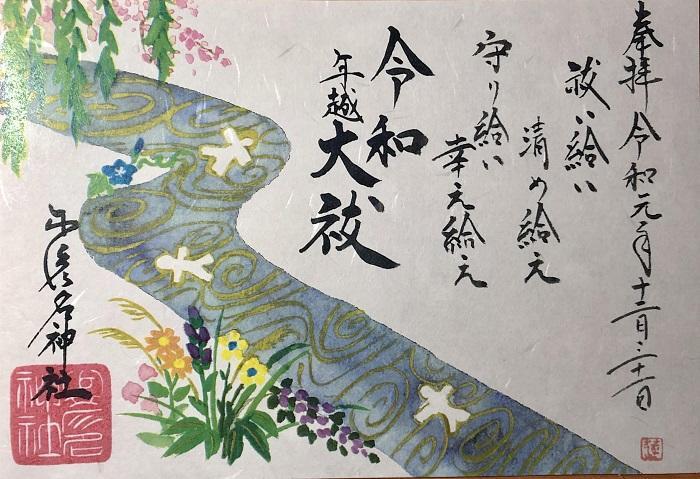 奉拝 令和元年十二月三十一日
祓い給い
清め給え
守り給い
幸え給え
令和
年越大祓
神社